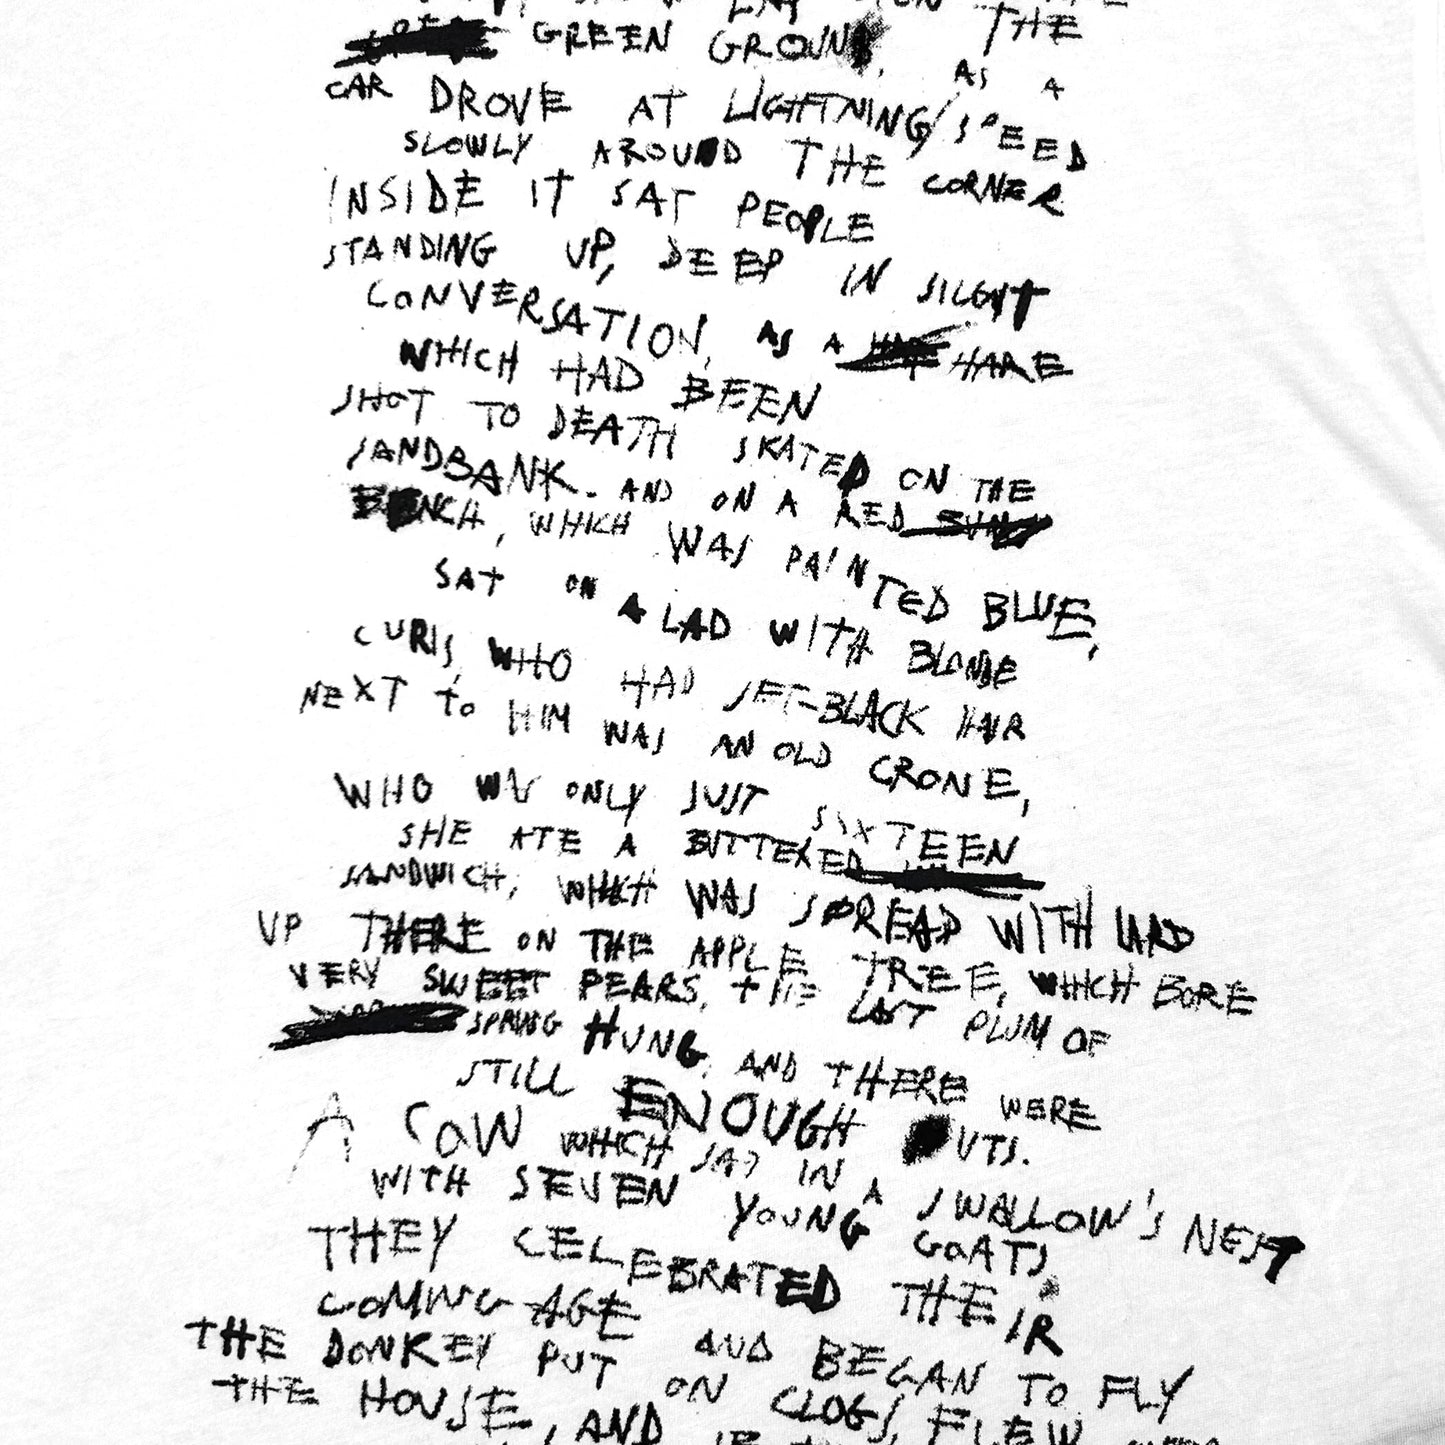 THE
GREEN GROUND, AS A
CAR DROVE AT LIGHTNING SPEED
SLOWLY AROUND THE CORNER
INSIDE IT SAT PEOPLE
STANDING UP, DEEP IN SILENT
CONVERSATION, AS A HARE
WHICH HAD BEEN
SHOT TO DEATH SKATED ON THE
SANDBANK. AND ON A RED
BENCH, WHICH WAS PAINTED BLUE,
SAT ON A LAD WITH BLONDE
CURLS, WHO HAD JET-BLACK HAIR
NEXT TO HIM WAS AN OLD CRONE,
WHO WAS ONLY JUST SIXTEEN
SHE ATE A BUTTERED
SANDWICH, WHICH WAS SPREAD WITH LARD
UP THERE ON THE APPLE TREE, WHICH BORE
VERY SWEET PEARS, THE LAST PLUM OF
SPRING HUNG, AND THERE WERE
STILL ENOUGH UTS.
A COW WHICH SAT IN A SWALLOW'S NEST
WITH SEVEN YOUNG GOATS,
THEY CELEBRATED THEIR
COMING AGE AND BEGAN TO FLY
THE DONKEY PUT ON CLOGS, FLEW
THE HOUSE, AND